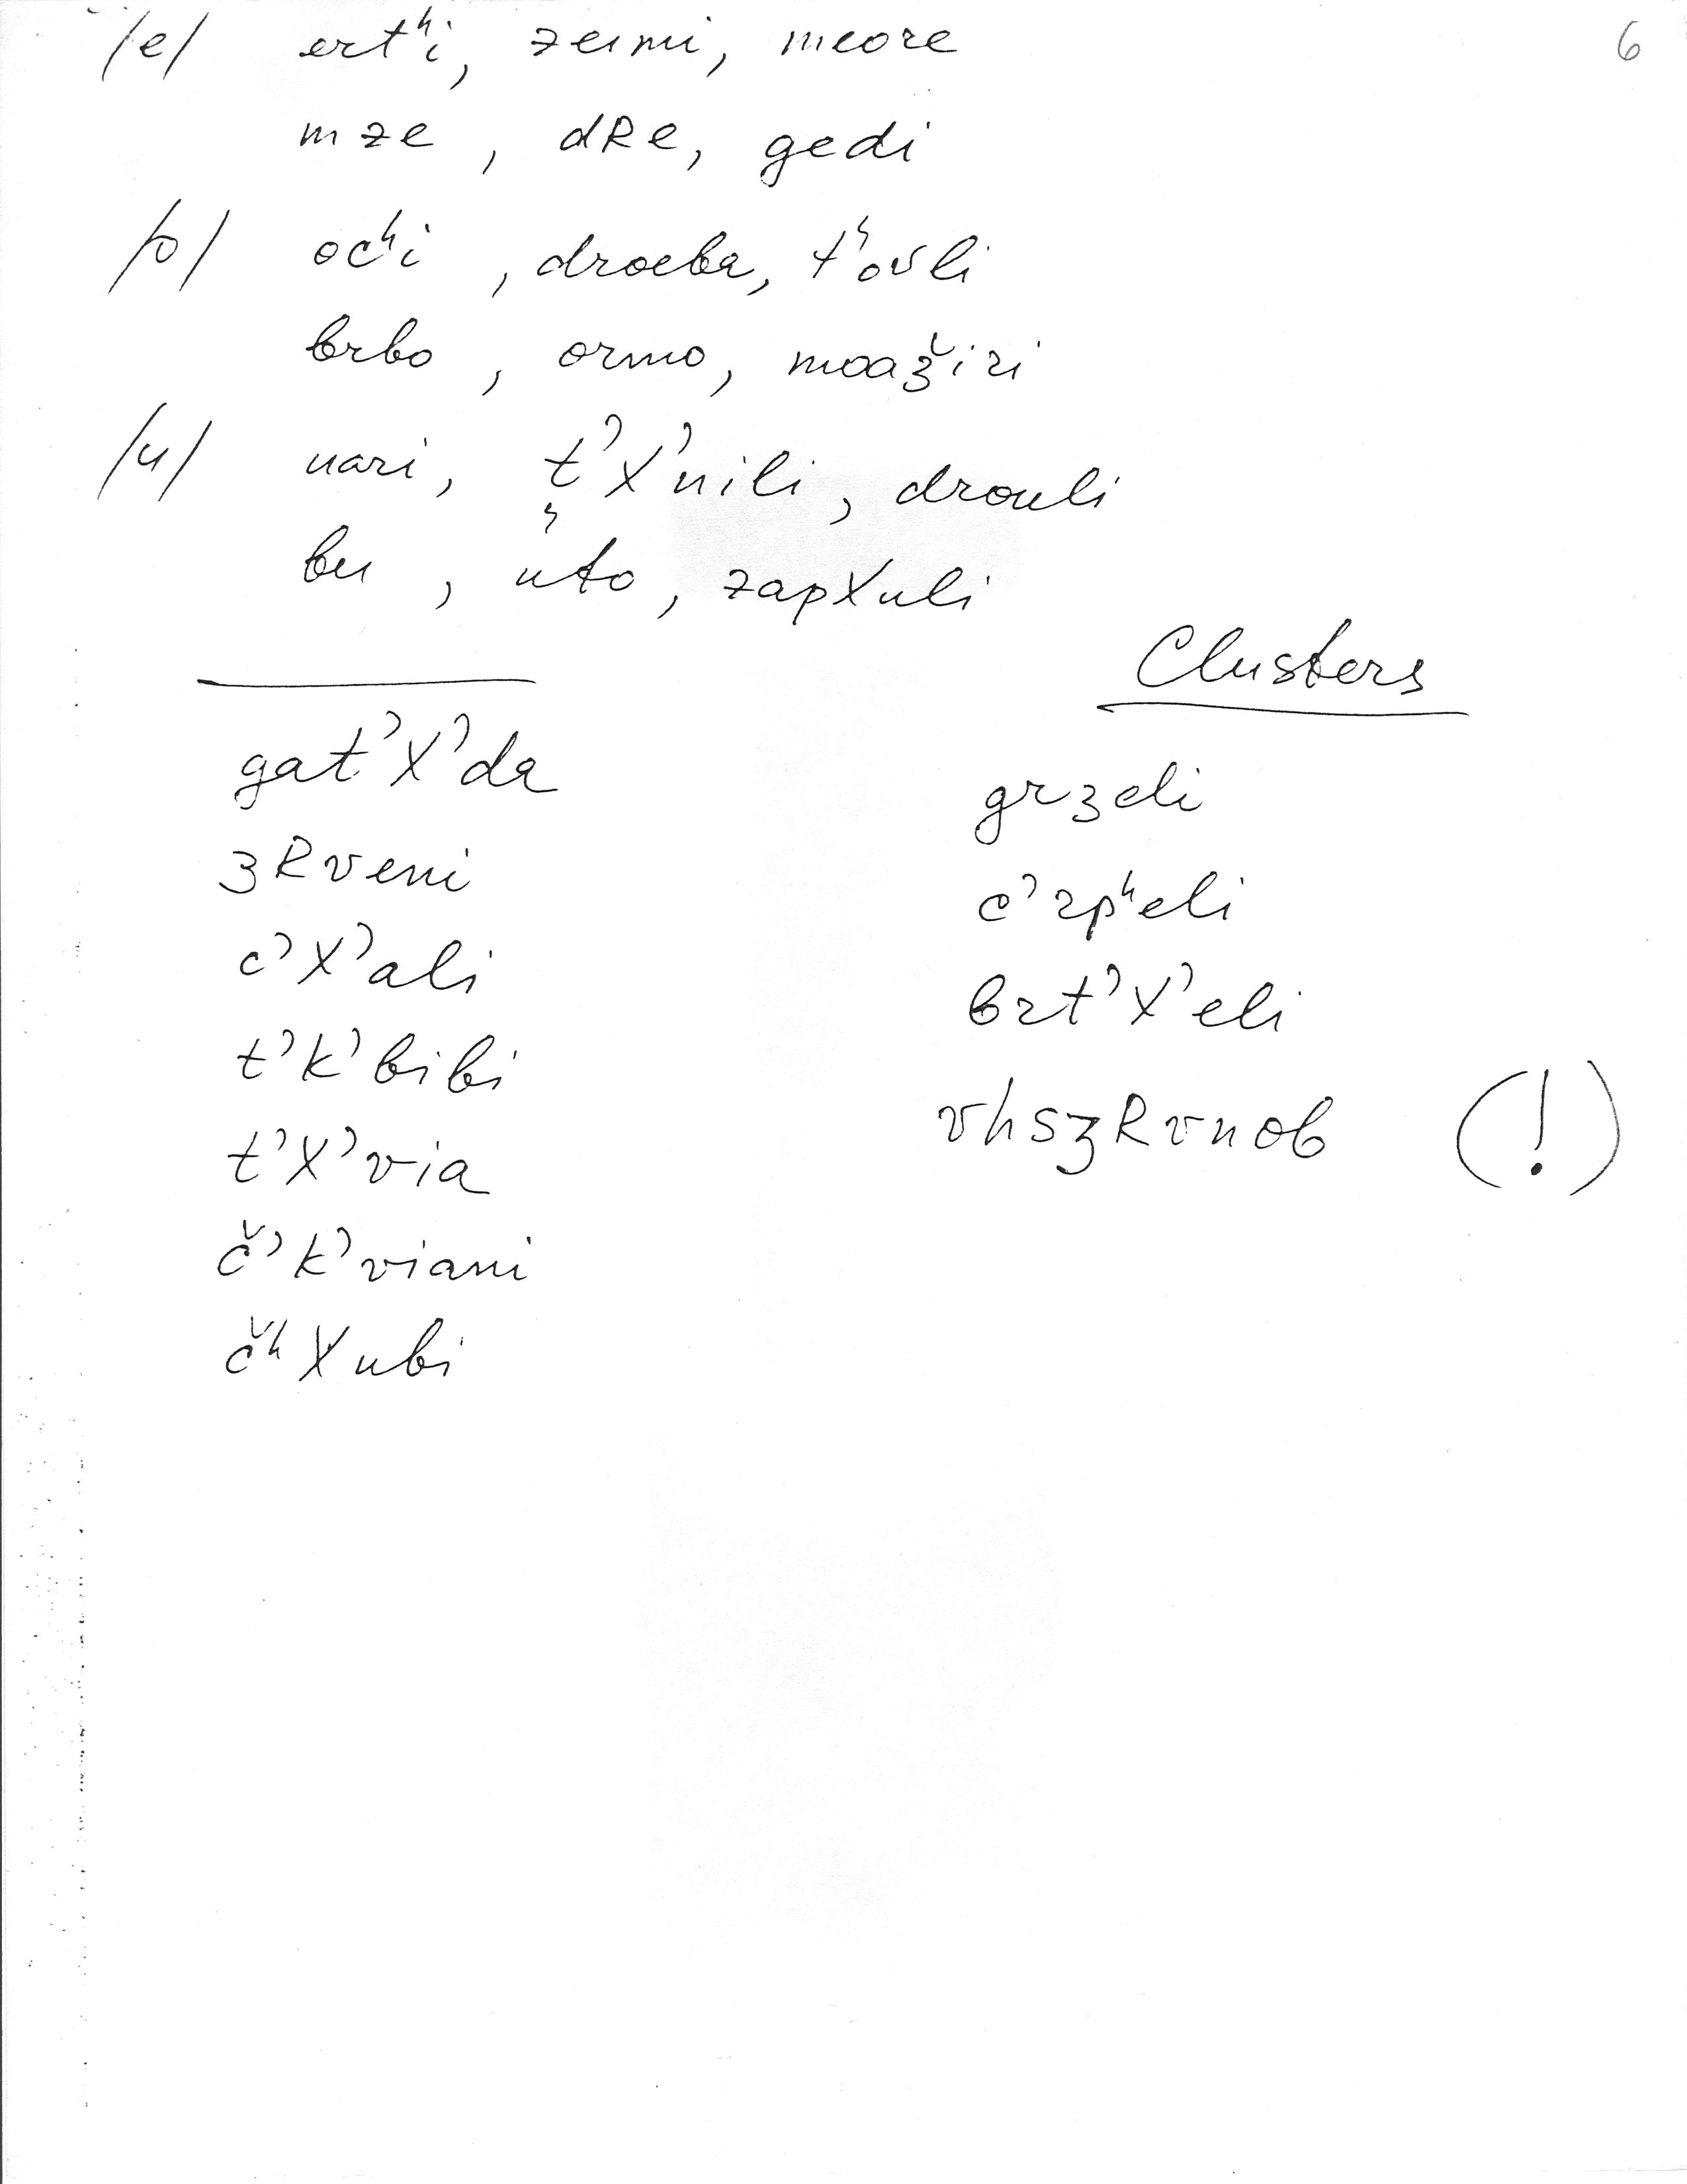 6
/e/ ertʰi, zeimi, meore
mze, dRe, gedi
/o/ ocʰi, droeba, tʰovli
brbo, ormo, moaǯiri
/u/ uari, t'X'uili, drouli
bu, uto, zapXuli
Clusters
gat'X'da
ʒRveni
c'X'ali
t'k'bibi
t'X'via
č'k'viani
čʰXubi
grʒeli
c'rpʰeli
brt'X'eli
vhsʒRvnob (!)